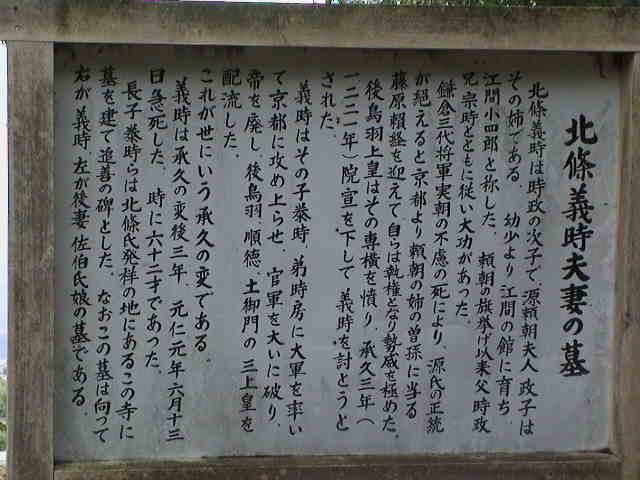 北條義時夫妻の墓
北條義時は時政の次子で、源頼朝夫人政子は
その姉である 幼少より江間の館に育ち、
江間小四郎と称した。 頼朝の旗挙げ以来父時政
兄宗時とともに従い大功があった。
鎌倉三代将軍実朝の不慮の死により、源氏の正統
が絶えると京都より頼朝の姉の曽孫に当る
藤原頼経を迎えて自らは執権となり勢威を極めた。
後鳥羽上皇はその専横を憤り、承久三年(
一二二一年)院宣を下して 義時を討とうと
された。
義時はその子泰時、弟時房に大軍を率い
て京都に攻め上らせ、官軍を大いに破り、
帝を廃し、後鳥羽、順徳、土御門の三上皇を
配流した。
これが世にいう承久の変である。
義時は承久の変後三年、元仁元年六月十三
日急死した、時に六十二才であった、
長子泰時らは北條氏発祥の地にあるこの寺に
墓を建て追善の碑とした、なおこの墓は向って
右が義時、左が後妻佐伯氏娘の墓である。